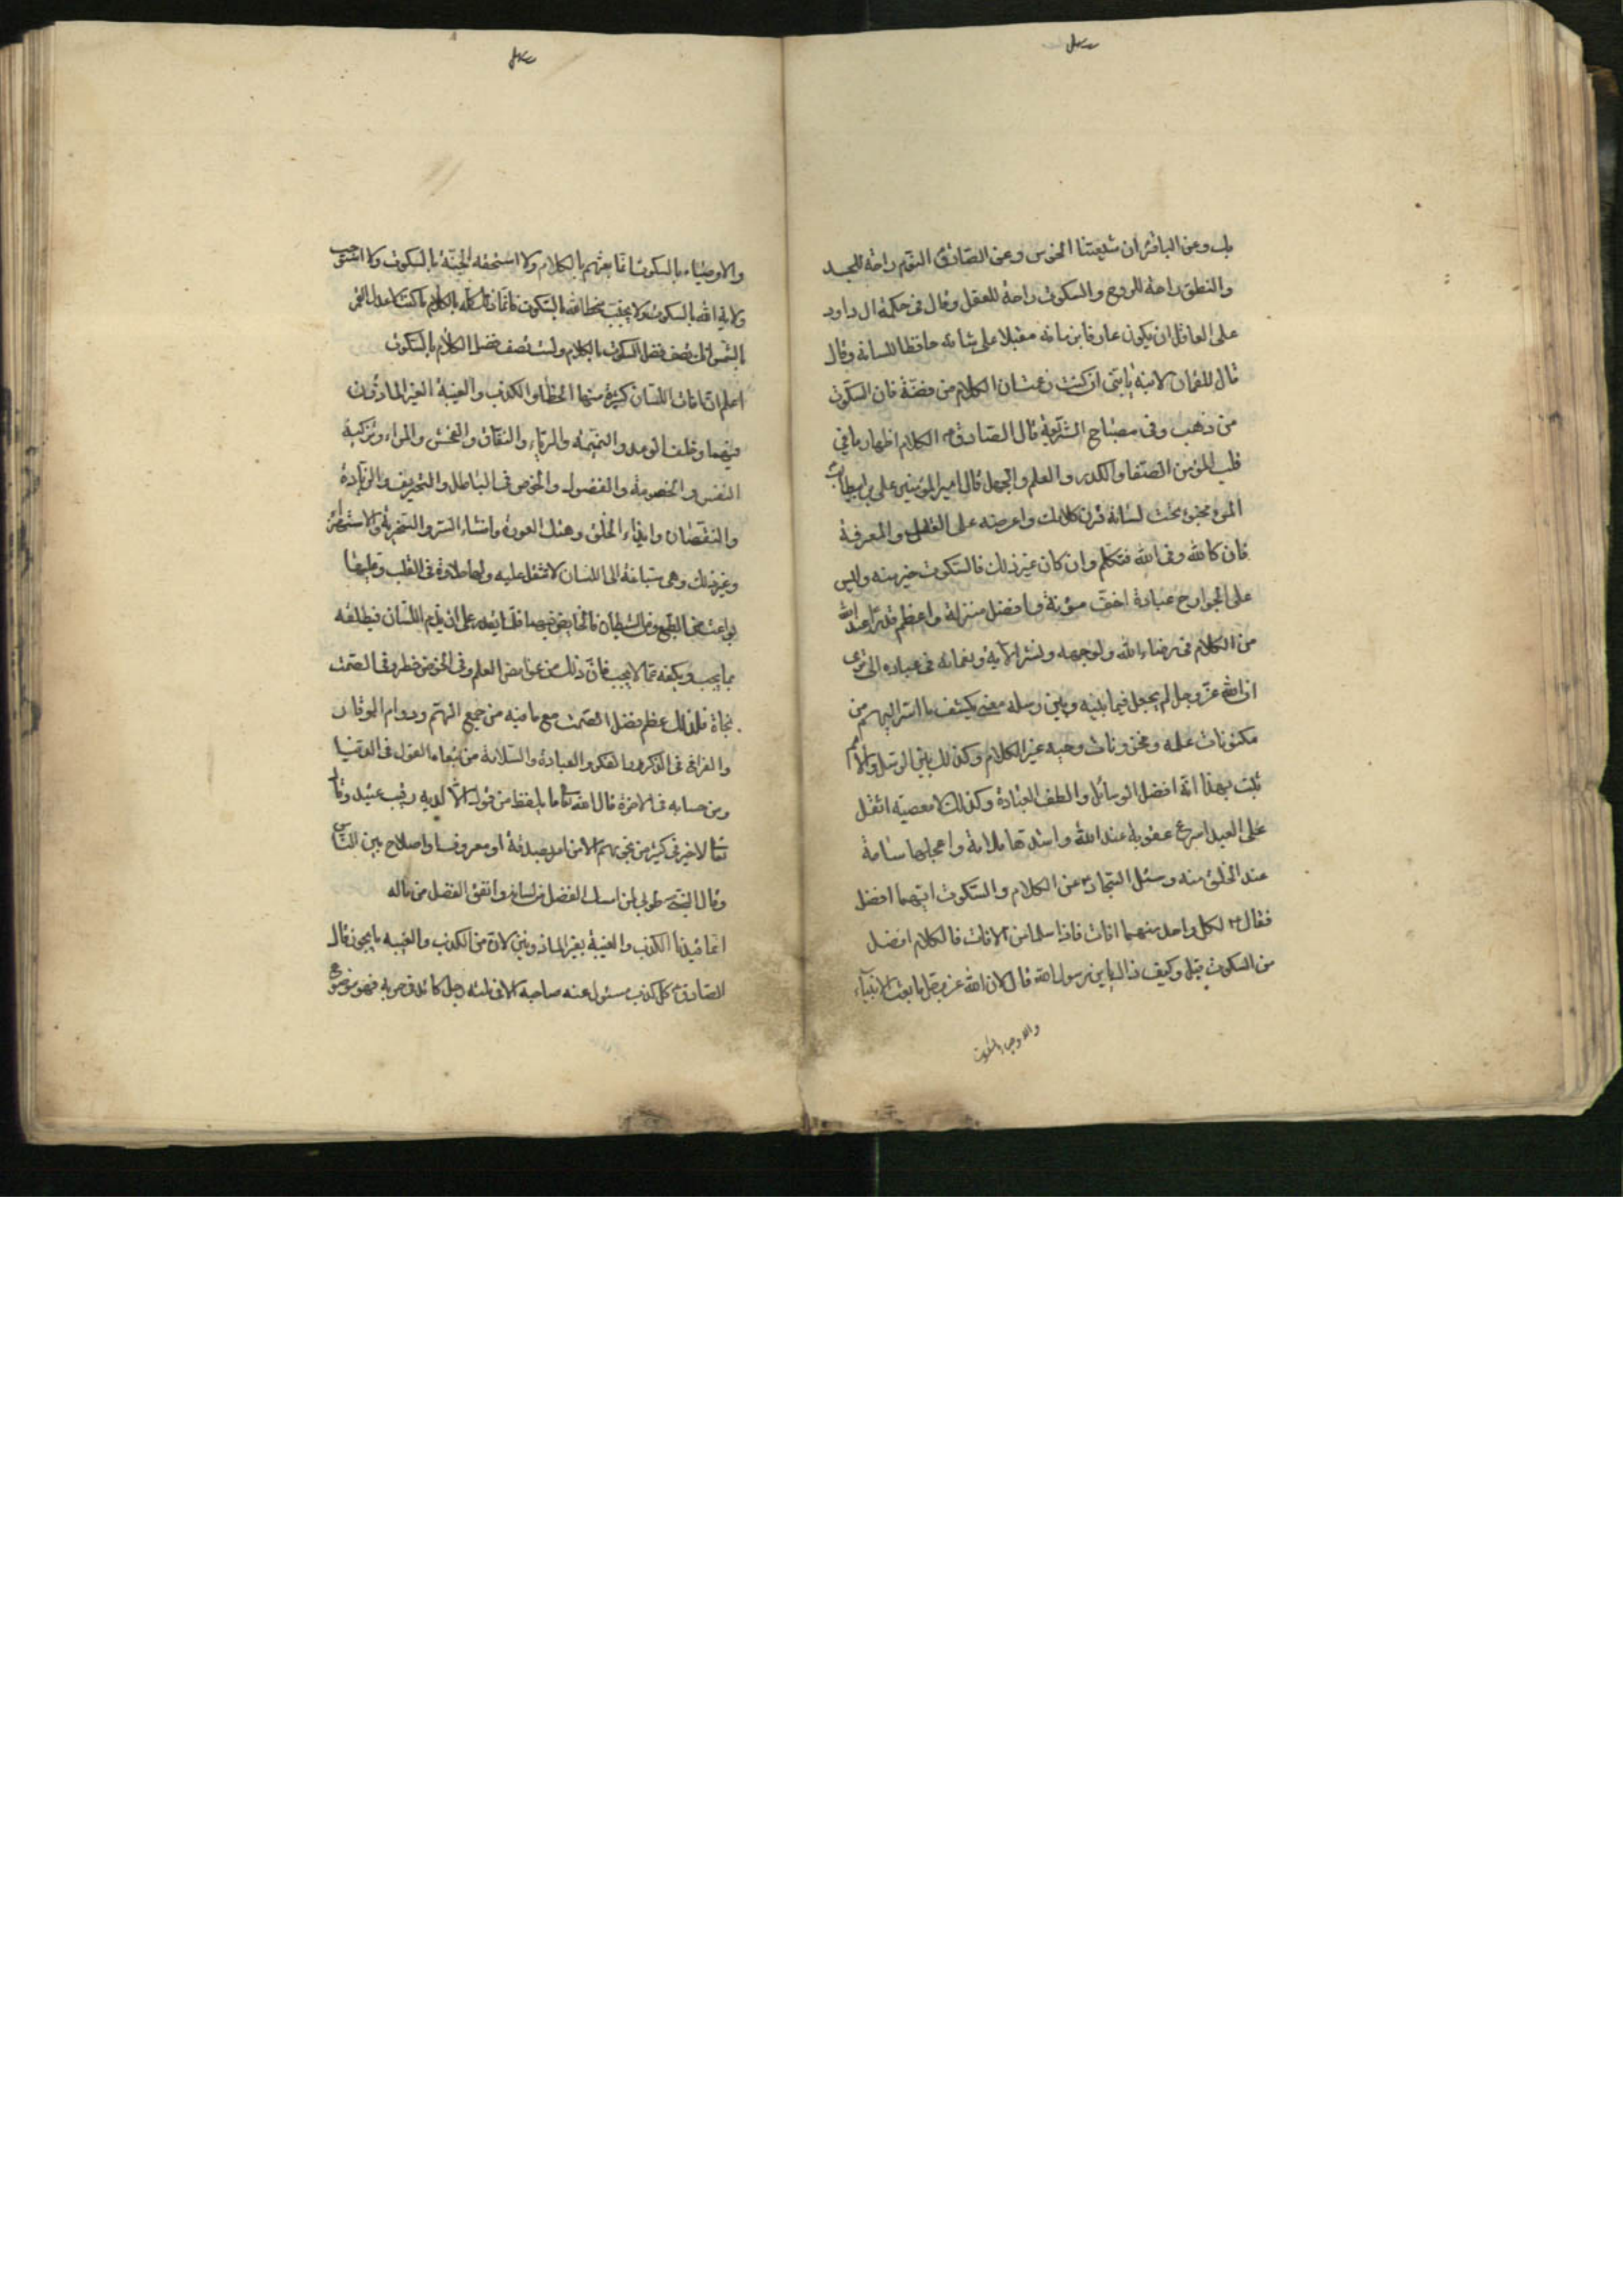 بك وعن الباقر ان شيعتنا الخرس وعن الصادق النوم راحة للجسد
والنطق راحة للروح والسكوت راحة للعقل وقال فى حكمة ال داود
على العاقل ان يكون عارفا بزمانه مقبلا على شانه حافظا للسانه وقال
قال لقمان لابنه يا بنى ان كنت زعمت ان الكلام من فضة فان السكوت
من ذهب وفى مصباح الشريعة قال الصادق ع الكلام اظهار ما فى
قلب المؤمن الصفا والكدر والعلم والجهل قال امير المؤمنين على بن ابيطالب
المرء مخبوء تحت لسانه فزن كلامك واعرضه على العقل والمعرفة
فان كان لله وفى الله فتكلم وان كان غير ذلك فالسكوت خير منه وليس
على الجوارح عبادة اخف مؤنة وافضل منزلة واعظم قدرا عند الله
من الكلام فى رضاء الله ولوجهه ونشر الآيه ونعمائه فى عباده الى ترى
ان الله عز وجل لم يجعل فيما بينه وبين رسله معنى يكشف ما اسر اليهم من
مكنونات علمه ومخزونات وحيه غير الكلام وكذلك بين الرسل والامم
ثبت بهذا انه افضل الوسائل والطف العبادة وكذلك لا معصية اثقل
على العبد اسرع عقوبة عند الله واشدتها ملامة واعجلها سامة
عند الخلق منه وسئل السجاد ع عن الكلام والسكوت ايهما افضل
فقال ع لكل واحد منهما افات فاذا سلما من الافات فالكلام افضل
من السكوت قيل وكيف ذاك يا بن رسول الله قال لان الله عز وجل ما بعث الانبياء
والاوصياء بالسكوت
والاوصياء بالسكوت انما بعثهم بالكلام ولا استحقه الجنة بالسكوت ولا استوجب
ولاية الله بالسكوت ولا يجتنب سخط الله بالسكوت انما ذلك كله بالكلام ما كنت لاعدل القمر
بالشمس انك تصف فضل السكوت بالكلام ولست تصف فضل الكلام بالسكوت
اعلم ان افات اللسان كثيرة منها الخطا والكذب والغيبة الغير الماذون
فيهما وخلف الوعد والنميمة والرياء والنفاق والفحش والمراء وتزكية
النفس والخصومة والفضول والخوض فى الباطل والتحريف والزيادة
والنقصان وايذاء الخلق وهتك العورة وافشاء السر والسخرية والاستهزاء
وغير ذلك وهى سباقة الى اللسان لا تثقل عليه ولها حلاوة فى القلب وعليها
بواعث من الطبع ومن الشيطان فالخايض فيها قلما يقدر على ان يلزم اللسان فيطلقه
بما يجب ويكفه عما لا يجب فان ذلك من غوامض العلم وفى الخوض خطر وفى الصمت
نجاة فلذلك عظم فضل الصمت مع ما فيه من جمع الهم ودوام الوقار
والفراغ فى الذكر والفكر والعبادة والسلامة من تبعات القول فى الدنيا
ومن حسابه فى الاخرة قال الله تعالى ما يلفظ من قول الا لديه رقيب عتيد وقال
تعالى لا خير فى كثير من نجويهم الا من امر بصدقة او معروف او اصلاح بين الناس
وقال النبى ص طوبى لمن امسك الفضل من لسانه وانفق الفضل من ماله
انما قيدنا الكذب والغيبة بغير الماذونين لان من الكذب والغيبه ما يجوز قال
الصادق ع كل كذب مسئول عنه صاحبه الا فى ثلثه رجل كائد فى حربه فهو موضوع